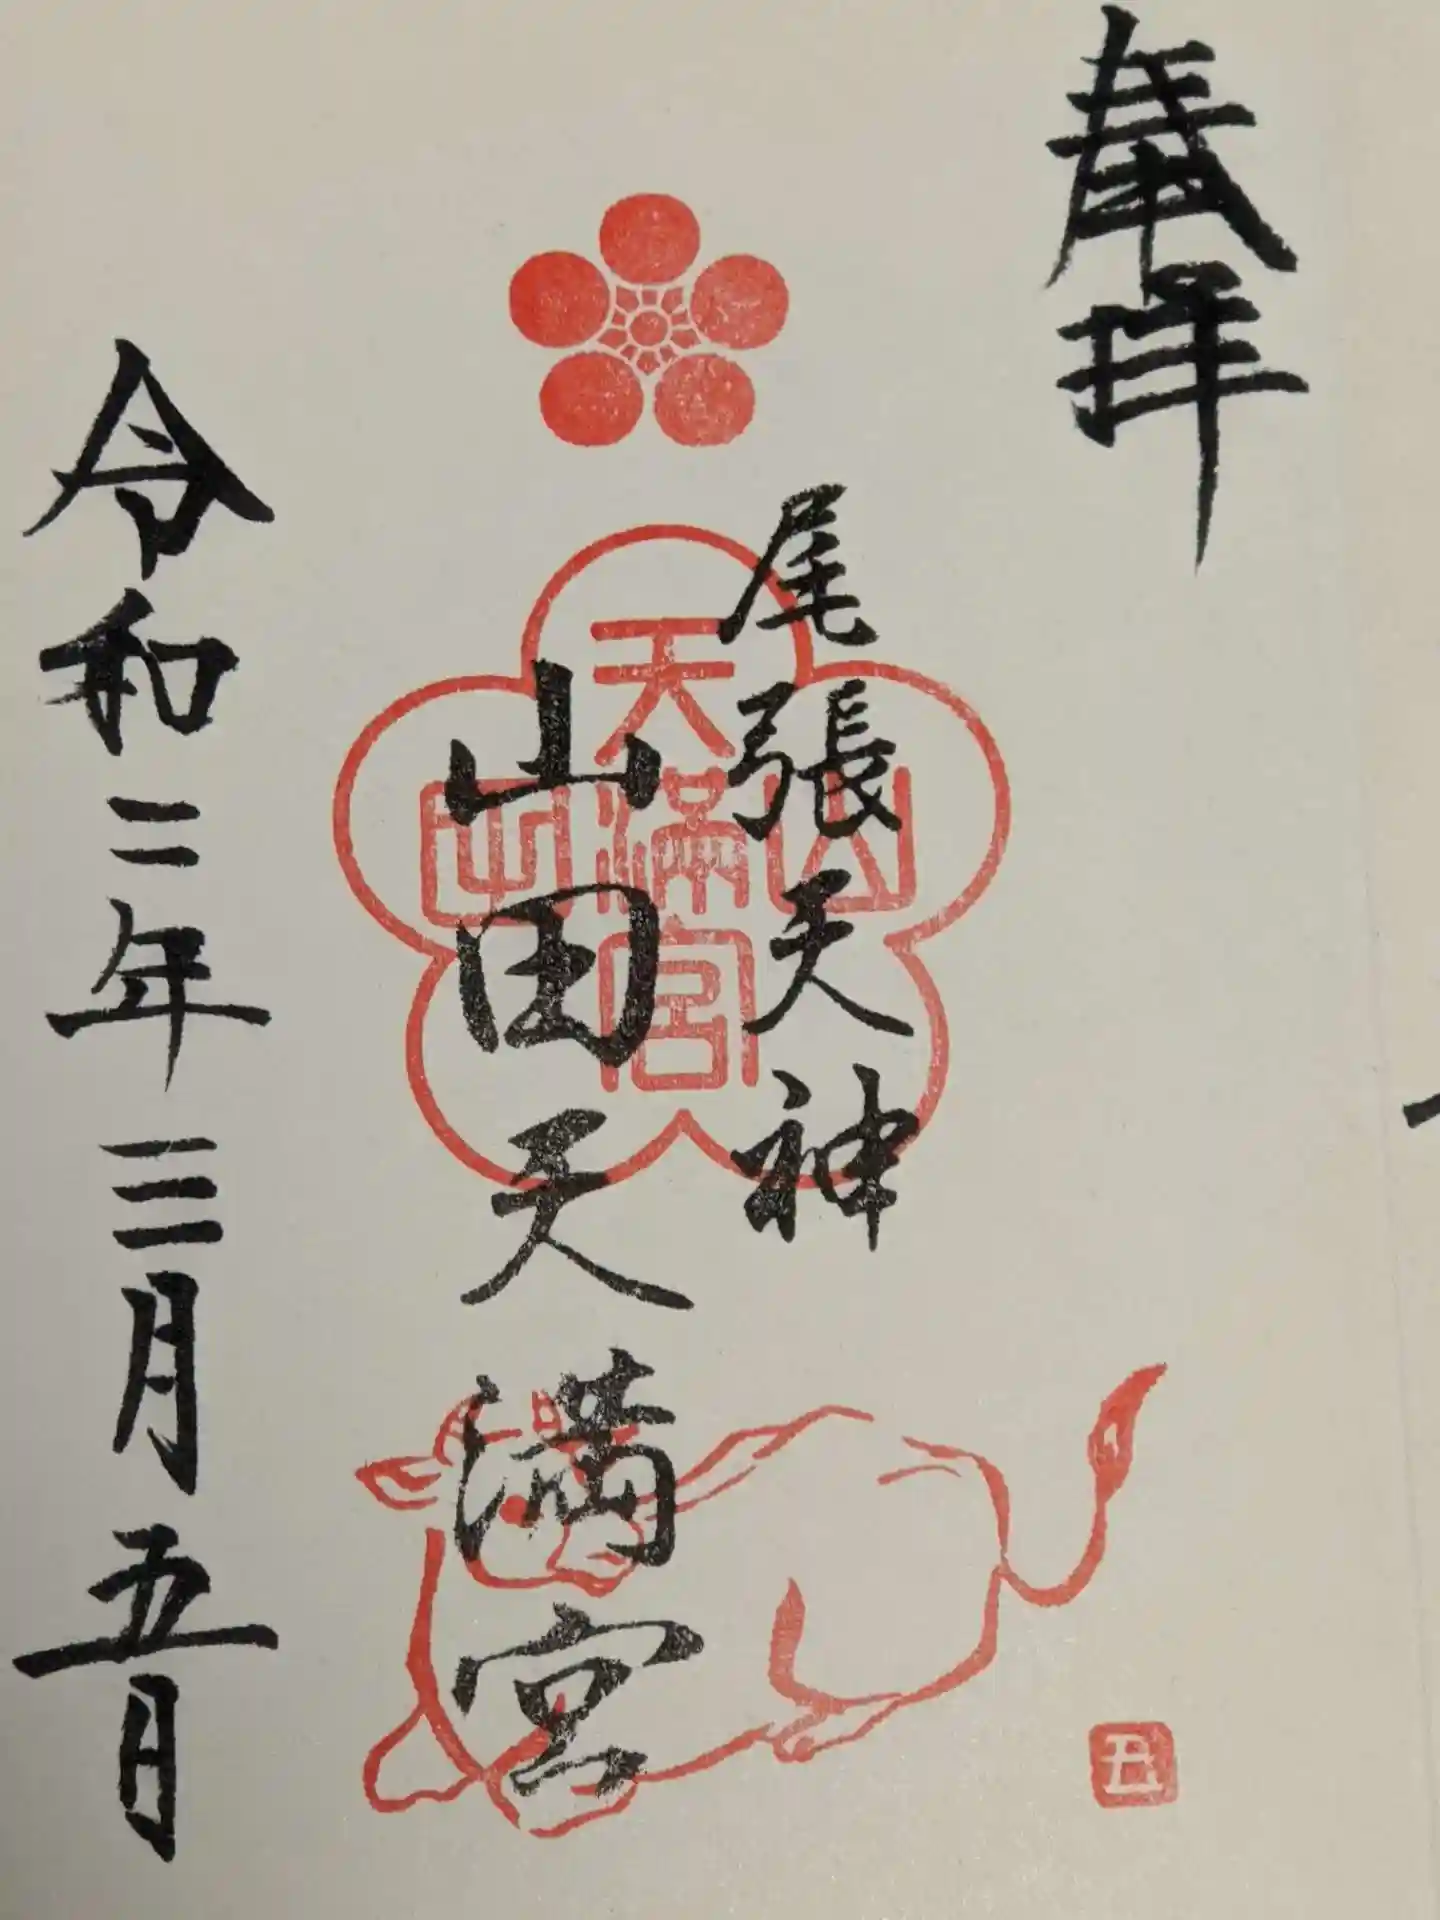 奉拝
尾張天神
山田天満宮
山田天満宮
令和二年三月五日
丑